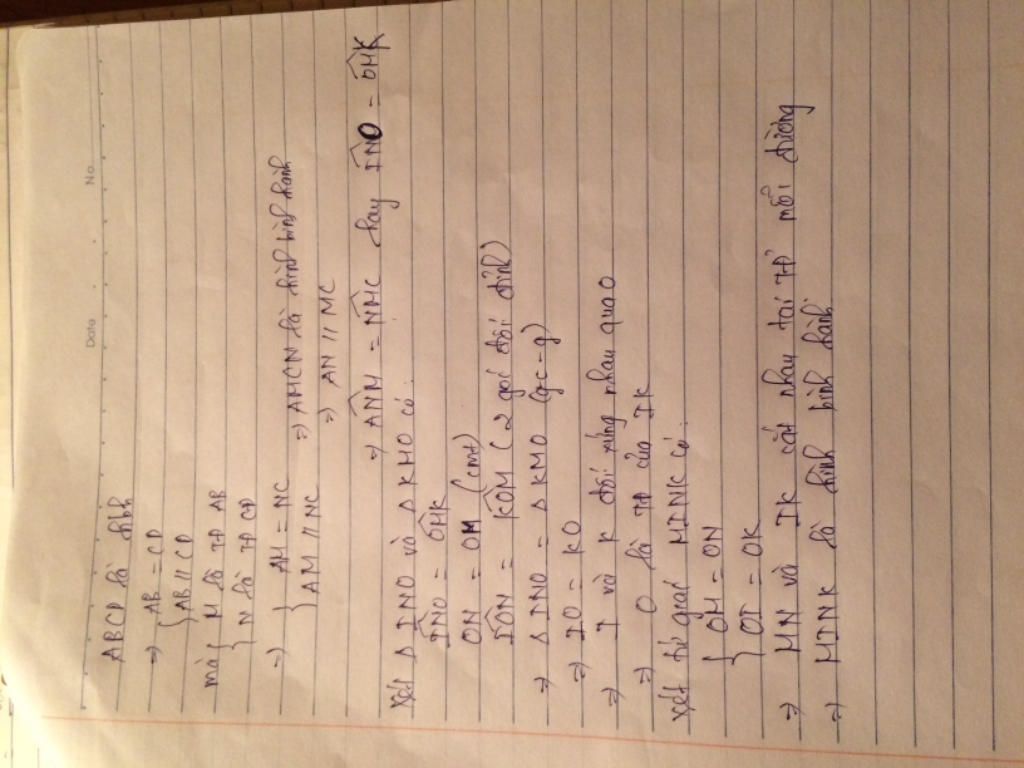 No.
Date
ABCD là hbh
=> { AB = CD
AB // CD
mà { M là TĐ AB
N là TĐ CD
=> { AM = NC => AMCN là hình bình hành
AM // NC => AN // MC
=> ANM̂ = NMĈ hay INÔ = OMK̂
Xét Δ INO và Δ KMO có:
INÔ = OMK̂
ON = OM (cmt)
IÔN = KÔM (2 góc đối đỉnh)
=> Δ INO = Δ KMO (g-c-g)
=> IO = KO
=> I và K đối xứng nhau qua O
=> O là TĐ của IK
Xét tứ giác MINK có:
{ OM = ON
OI = OK
=> MN và IK cắt nhau tại TĐ mỗi đường
=> MINK là hình bình hành